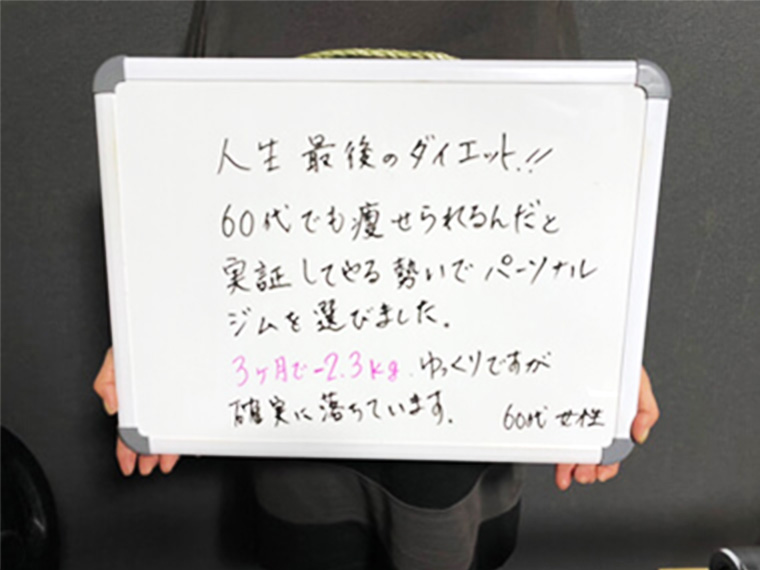 人生最後のダイエット!!
60代でも痩せられるんだと
実証してやる勢いでパーソナル
ジムを選びました。
3ヶ月で-2.3kg.ゆっくりですが
確実に落ちています。
60代女性